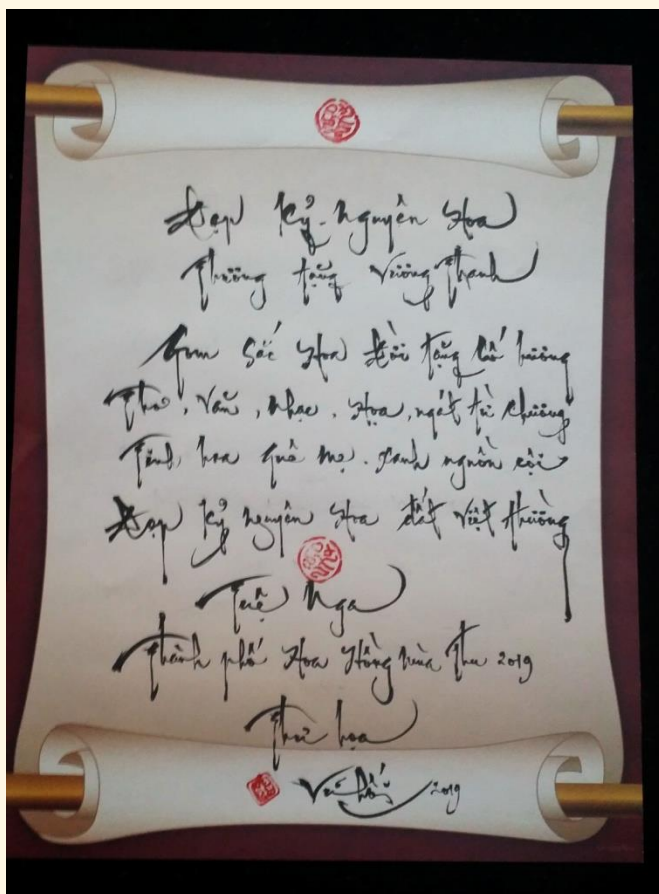 Đẹp Kỷ Nguyên Hoa
Thương tặng Vương Thanh
Gom Sắc Hoa Đời tặng cố hương
Thơ, Văn, Nhạc, Họa, ngát từ chương
Tinh hoa Quê Mẹ. Xanh nguồn cội
Đẹp Kỷ Nguyên Hoa đất Việt thường
Tuệ Nga
Thành phố Hoa Hồng Mùa Thu 2019
Thư họa
Vũ Hối 2019